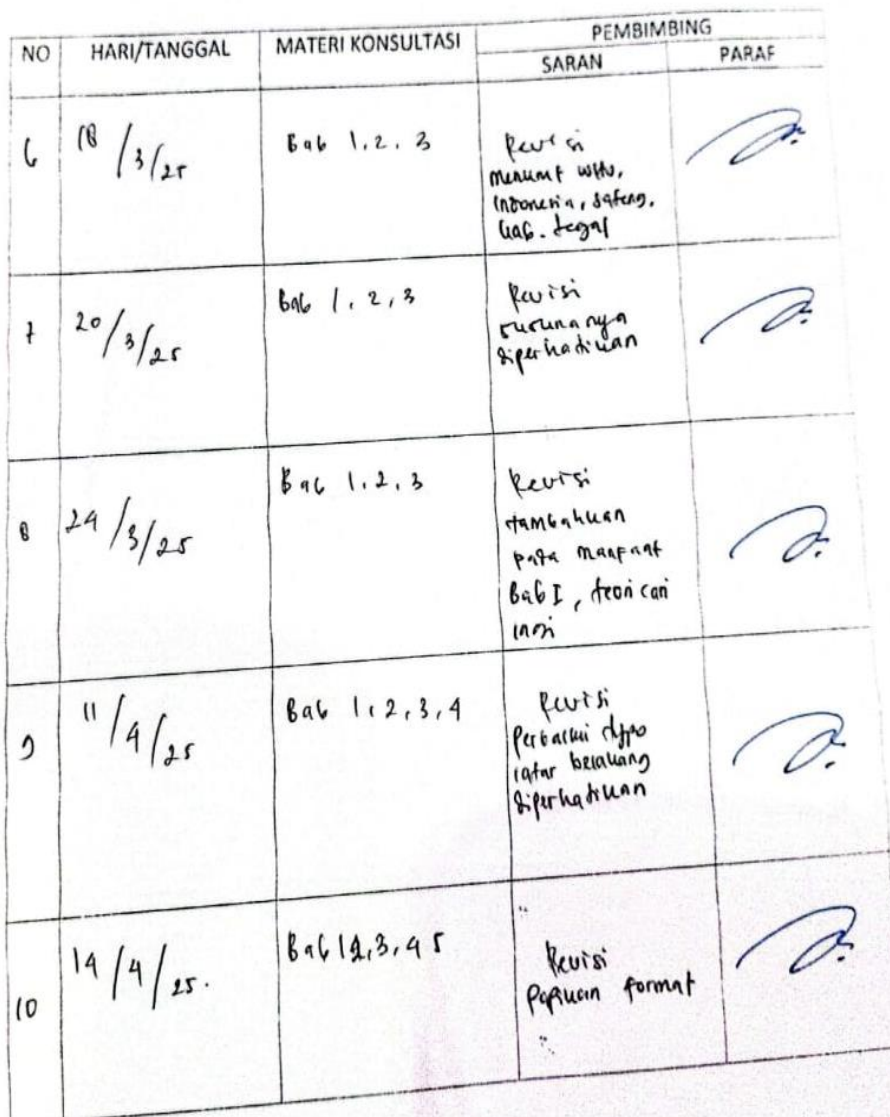 NO HARI/TANGGAL MATERI KONSULTASI PEMBIMBING
SARAN PARAF
6 18/3/25 Bab 1, 2, 3 Revisi
menurut WHO,
Indonesia, Jateng,
kab. tegal
7 20/3/25 Bab 1, 2, 3 Revisi
susunanya
diperhatikan
8 24/3/25 Bab 1, 2, 3 Revisi
tambahkan
pada manfaat
Bab I, teori cari
9 11/4/25 Bab 1, 2, 3, 4 Revisi
Perbaiki typo
latar belakang
diperhatikan
10 14/4/25. Bab 1 2, 3, 4 5 Revisi
format